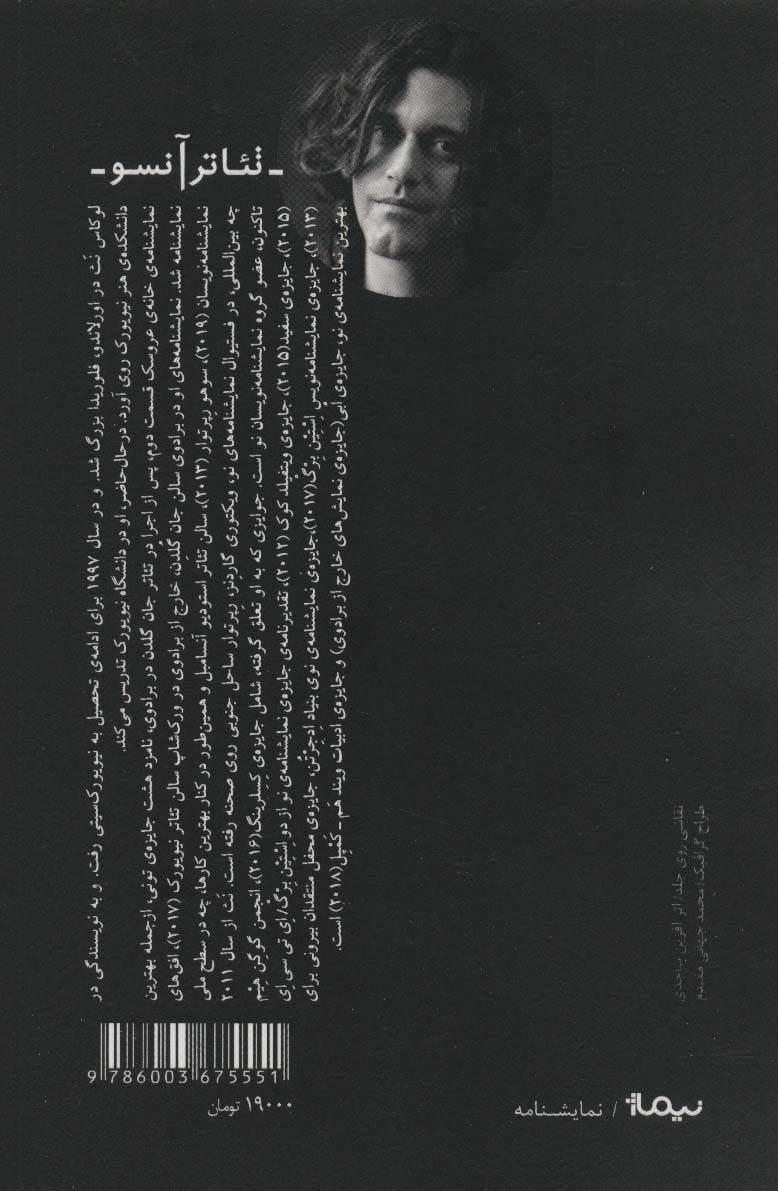 ـ تئاتر آنسو ـ
لوکاس نَت در اورلاندو، فلوریدا بزرگ شد. و در سال ۱۹۹۷ برای ادامه‌ی تحصیل به نیویورک‌سیتی رفت. و به نویسندگی در
دانشکده‌ی هنر نیویورک روی آورد. درحال‌حاضر، او در دانشگاه نیویورک تدریس می‌کند.
نمایشنامه‌ی خانه‌ی عروسک قسمت دوم، پس از اجرا در تئاتر جان گلدن در برادوی، نامزد هشت جایزه‌ی تونی، ازجمله بهترین
نمایشنامه شد. نمایشنامه‌های او در برادوی سالن جان گلدِن، خارج از برادوی در ورک‌شاپ سالن تئاتر نیویورک (۲۰۱۷)، افق‌های
نمایشنامه‌نویسان (۲۰۱۹)، سوهو رِپرتوار (۲۰۱۳)، سالن تئاتر استودیو آنسامبل و همین‌طور در کنار بهترین کارها، چه در سطح ملی
چه بین‌المللی، در فستیوال نمایشنامه‌های نو، ویکتوری گاردِنز، رِپرتوار ساحل جنوبی روی صحنه رفته است. نَت از سال ۲۰۱۱
تاکنون، عضو گروه نمایشنامه‌نویسان نو است. جوایزی که به او تعلق گرفته، شامل جایزه‌ی کِسلرینگ(۲۰۱۶)، انجمن گوگِن هیْم
(۲۰۱۵)، جایزه‌ی سفید(۲۰۱۵)، جایزه‌ی ویتفیلد کوک (۲۰۱۲)، تقدیرنامه‌ی جایزه‌ی نمایشنامه‌ی نو از دو اشتیْن بِرگ/ اِی تی سی اِی
(۲۰۱۳)، جایزه‌ی نمایشنامه‌نویس اشتیْن بِرگ(۲۰۱۷)،جایزه‌ی نمایشنامه‌ی نوی بنیاد اِدجِرتُن، جایزه‌ی محفل منتقدان بیرونی برای
بهترین نمایشنامه‌ی نو، جایزه‌ی اُبی(جایزه‌ی نمایش‌های خارج از برادوی) و جایزه‌ی ادبیات ویند هَم ـ کَمْپِل(۲۰۱۸) است.
نقاشی روی جلد/ اثر آفرین ساجدی
طراح گرافیک/ محمد جهانی مقدم
9 786003 675551
۱۹۰۰۰ تومان
نیماژ / نمایشنامه